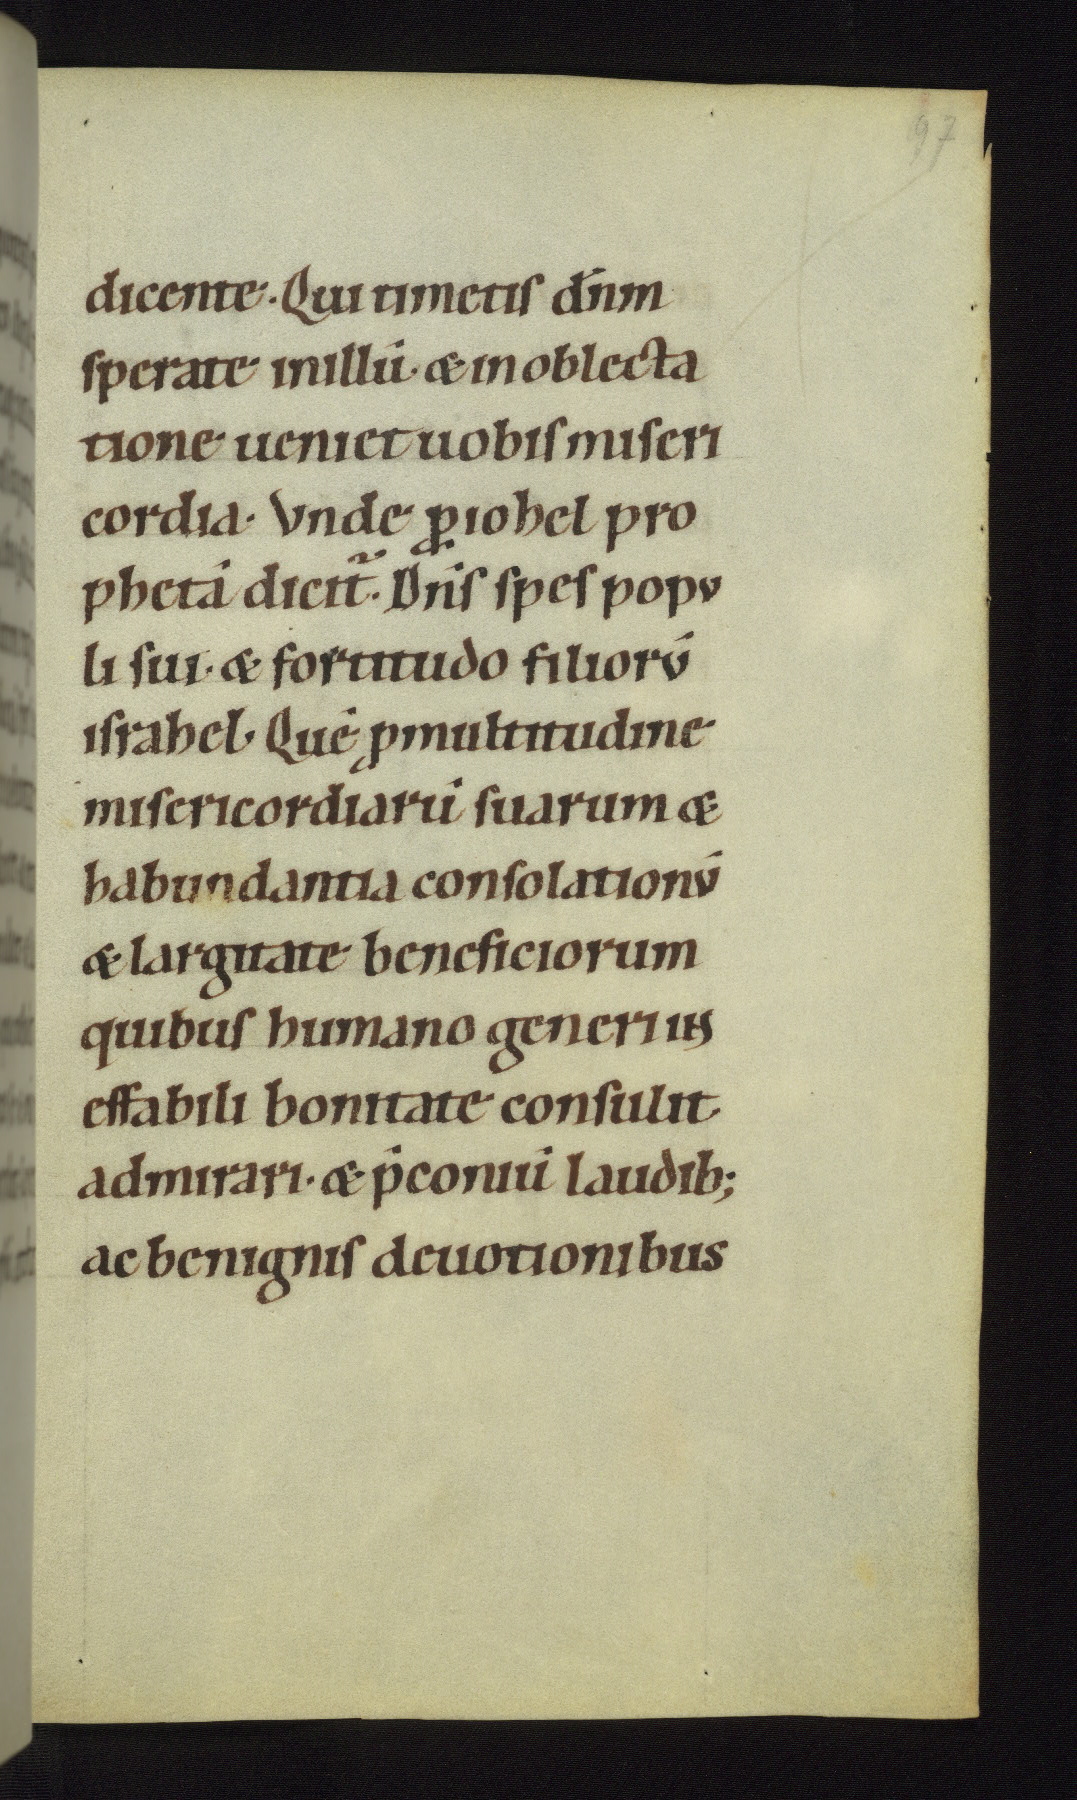 97
dicente. Qui timetis dn̄m
sperate inillū. & inoblecta
tione ueniet uobis miseri
cordia. Vnde ꝓ iohel pro
phetā dicit᷑. Dn̄s spes popv
li sui. & fortitudo filiorv̄
israhel. Quē ꝓ multitudine
misericordiarū suarum &
habundantia consolationv̄
& largitate beneficiorum
quibus humano generi in
effabili bonitate consulit
admirari. & p̄coniū laudib;
ac benignis deuotionibus